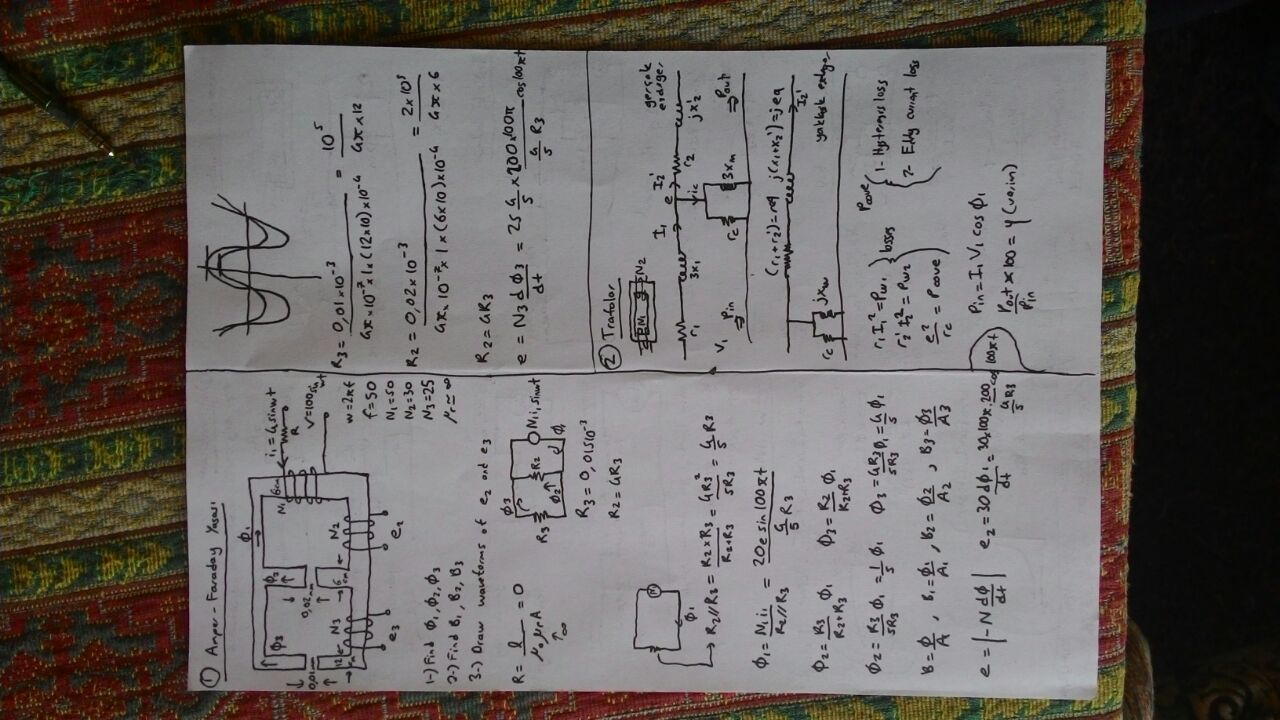 ① Amper-Faraday Yasası
Φ1
i1=4sinwt
R
V=100sinwt
N1
6cm
Φ3
Φ2
0,01mm
0,02mm
12cm
6cm
N3
N2
e3
e2
w=2πf
f=50
N1=50
N2=30
N3=25
μr≃∞
1-) Find Φ1, Φ2, Φ3
2-) Find B1, B2, B3
3-) Draw waveforms of e2 and e3
R = l / μ0 μr A = 0
↑∞
Φ3
R3
Φ2
R2
N1 i1 sinwt
Φ1
R3 = 0,01x10^-3
R2 = 4R3
Φ1
→ R2//R3 = R2xR3 / R2+R3 = 4R3^2 / 5R3 = 4/5 R3
Φ1 = N1 i1 / R2//R3 = 200 sin100πt / 4/5 R3
Φ2 = R3 / R2+R3 Φ1 Φ3 = R2 / R2+R3 Φ1
Φ2 = R3 / 5R3 Φ1 = 1/5 Φ1 Φ3 = 4R3 / 5R3 Φ1 = 4/5 Φ1
B = Φ/A , B1 = Φ1/A1 , B2 = Φ2/A2 , B3 = Φ3/A3
e = |-N dΦ/dt| e2 = 30 dΦ1/dt = 30x100π.200 cos100πt / 4/5 R3
R3 = 0,01x10^-3 / 4πx10^-7x1x(12x10)x10^-4 = 10^5 / 4πx12
R2 = 0,02x10^-3 / 4πx10^-7x1x(6x10)x10^-4 = 2x10^5 / 4πx6
R2 = 4R3
e = N3 dΦ3/dt = 25 4/5 x 200.100π cos100πt / 4/5 R3
② Trafolar
N1
N2
gerçek eşdeğer
r1
jx1
I1
e
I2'
r2
jx2'
V1
⇒ Pin
ic
rc
jxm
⇒ Pout
(r1+r2')=req j(x1+x2')=jeq
rc
jxm
I2'
yaklaşık eşdeğer
r1 I1^2 = Pw1
r2' I2'^2 = Pw2
} losses
e^2/rc = Pcore
Pcore { 1- Hysteresis loss
2- Eddy current loss
Pin = I1 V1 cos Φ1
Pout / Pin x 100 = η (verim)